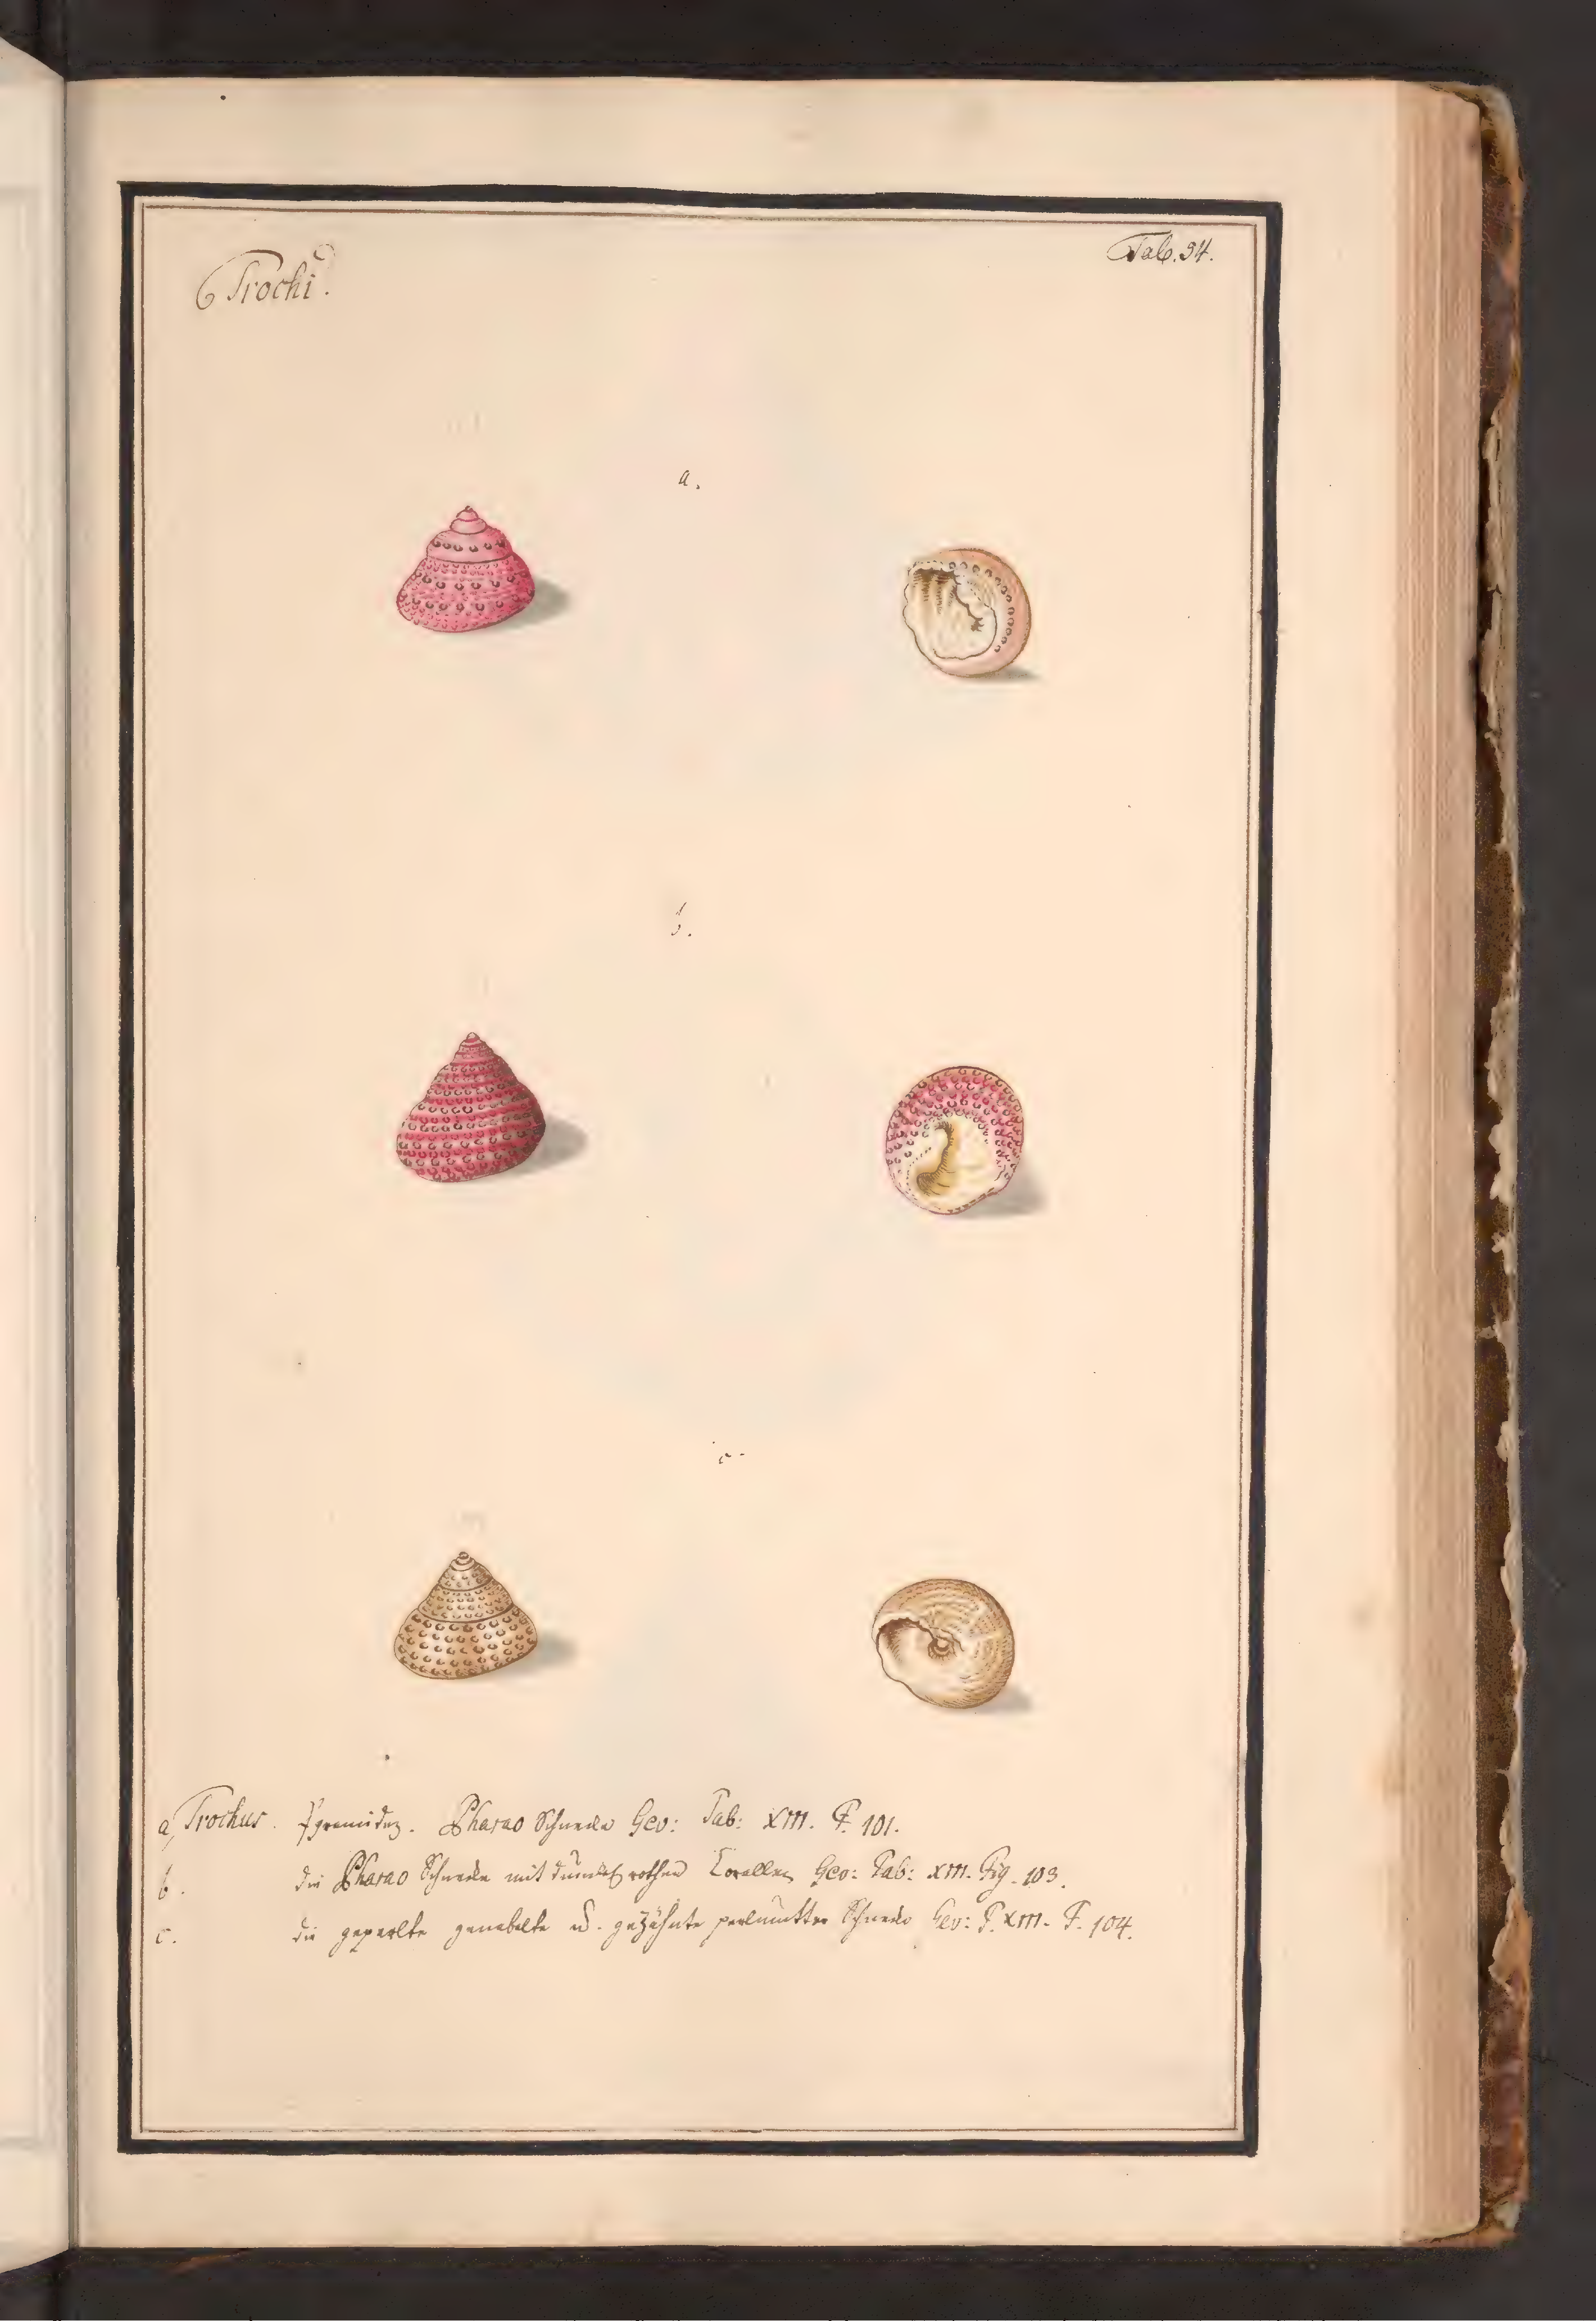 Trochi.
Tab. 94.
a.
b.
c.
a, Trochus. Pyramides. Pharao Schnecke Gev: Tab: XIII. F. 101.
b. die Pharao Schnecke mit dunckel rothen Corallen Gev: Tab: XIII. Fig. 103.
c. die geperlte genabelte u. gezähnte Schnecke Gev: T. XIII. F. 104.